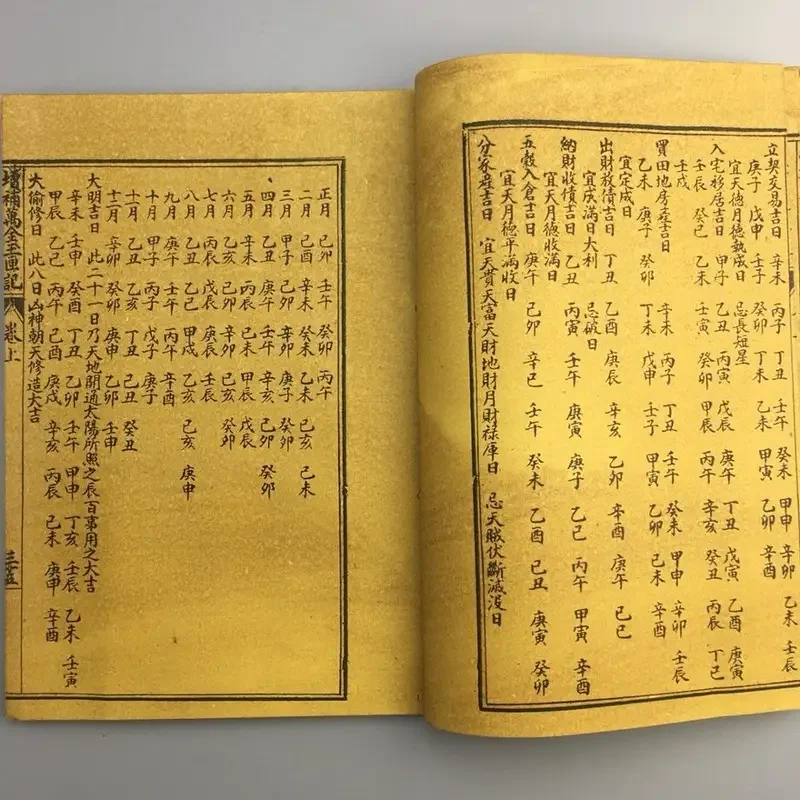 立契交易吉日 辛未 丙子 丁丑 壬午 癸未 甲申 辛卯 乙未 壬辰
庚子 戊申 壬子 癸卯 丁未 乙未 甲寅 乙卯 辛酉
宜天德月德執成日 忌長短星
入宅移居吉日 甲子 乙丑 丙寅 戊辰 庚午 丁丑 戊寅 乙酉 庚寅
壬辰 癸巳 乙未 壬寅 癸卯 甲辰 丙午 辛亥 癸丑 丙辰 丁巳
壬戌
買田地房產吉日 辛未 丙子 丁丑 壬午 癸未 甲申 辛卯 壬辰
乙未 庚子 癸卯 丁未 戊申 壬子 甲寅 乙卯 己未 辛酉
宜定成日
出財放債吉日 丁丑 乙酉 庚辰 辛亥 乙卯 辛酉 庚午 己巳
宜成滿日大利 忌破日
納財收債吉日 乙丑 丙寅 壬午 庚寅 庚子 乙巳 丙午 甲寅 辛酉
宜天月德收滿日
五穀入倉吉日 庚午 己卯 辛巳 壬午 癸未 乙酉 己丑 庚寅 癸卯
宜天月德平滿收日
分家產吉日 宜天貴天富天財地財月財祿庫日 忌天賊伏斷滅沒日
正月 己卯 壬午 癸卯 丙午
二月 己酉 辛未 癸未 乙未 己亥 己未
三月 甲子 己卯 辛卯 庚子 癸卯
四月 乙丑 庚午 壬午 辛亥 己卯 癸卯
五月 辛未 乙未 己未 甲辰 戊辰
六月 乙亥 己卯 辛卯 己亥 癸卯
七月 丙辰 戊辰 庚辰 壬辰
八月 乙丑 乙巳 甲戌 乙亥 己亥 庚申
九月 庚午 壬午 丙午 辛酉
十月 甲子 丙子 戊子 庚子
十一月 乙丑 乙亥 丁丑 己丑 癸丑
十二月 辛卯 癸卯 庚申 乙卯 壬申
大明吉日 此二十一日乃天地開通太陽所照之辰百事用之大吉
辛未 壬申 癸酉 丁丑 乙卯 壬午 甲申 丁亥 壬辰 乙未 壬寅
甲辰 乙巳 丙午 己酉 庚戌 辛亥 丙辰 己未 庚申 辛酉
大偷修日 此八日凶神朝天修造大吉
增補萬全玉匣記 卷上 三五